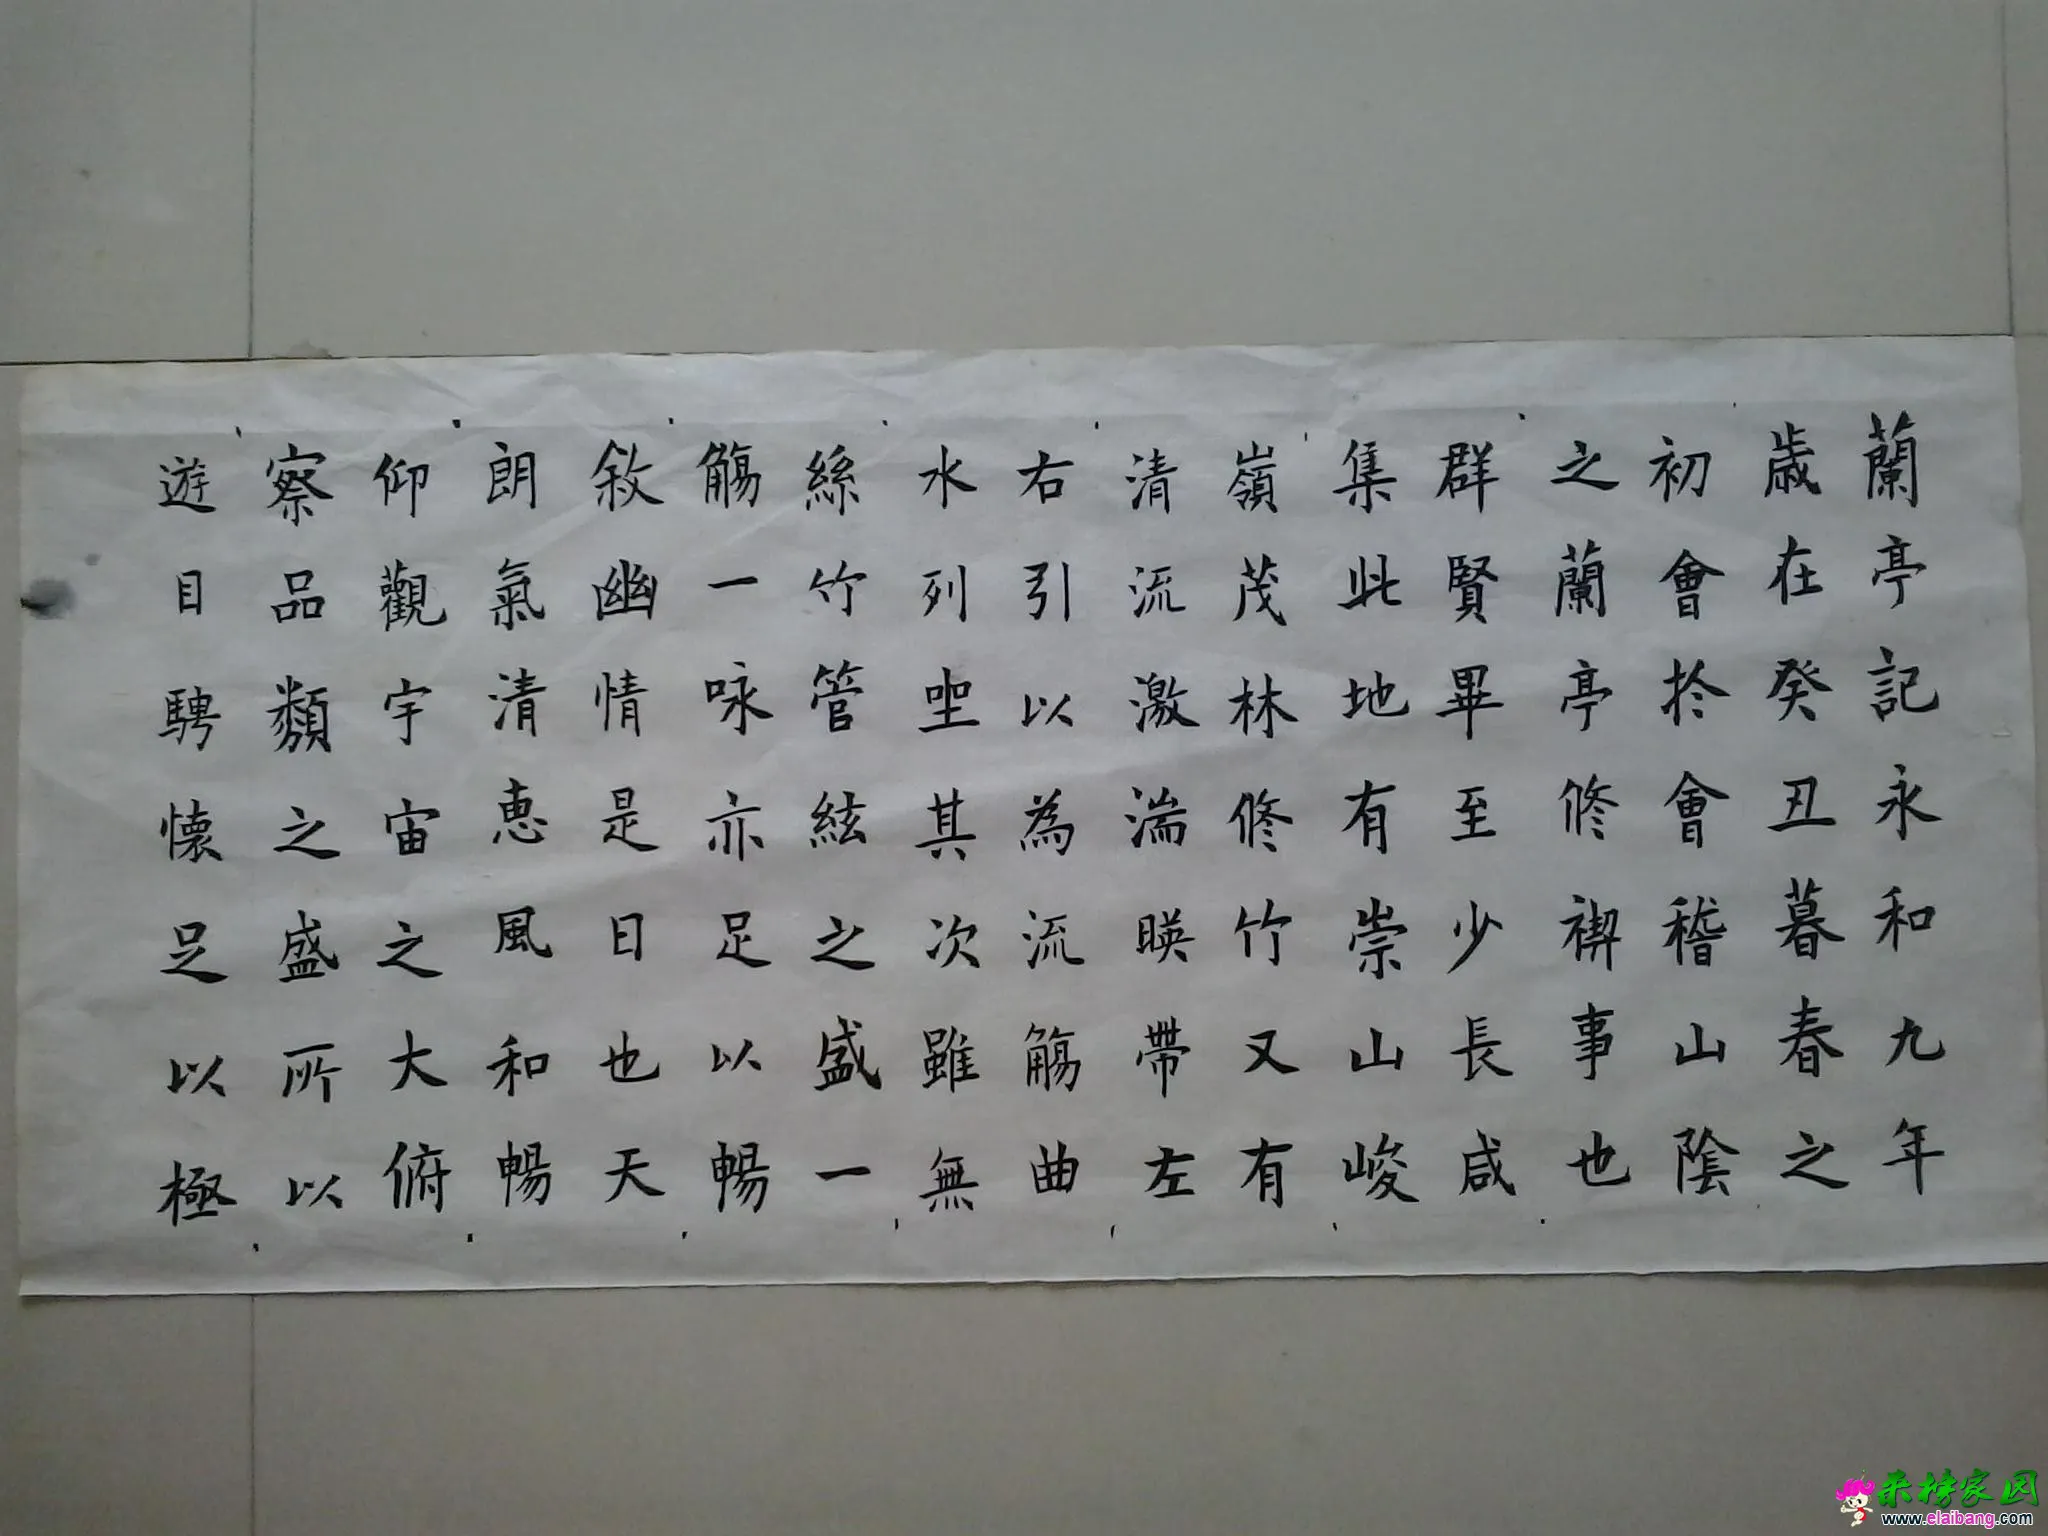 蘭亭記永和九年
歲在癸丑暮春之
初會於會稽山陰
之蘭亭修禊事也
群賢畢至少長咸
集此地有崇山峻
嶺茂林修竹又有
清流激湍暎帶左
右引以為流觴曲
水列坐其次雖無
絲竹管絃之盛一
觴一咏亦足以暢
敘幽情是日也天
朗氣清惠風和暢
仰觀宇宙之大俯
察品類之盛所以
遊目騁懷足以極
来榜家园
www.elaibang.com